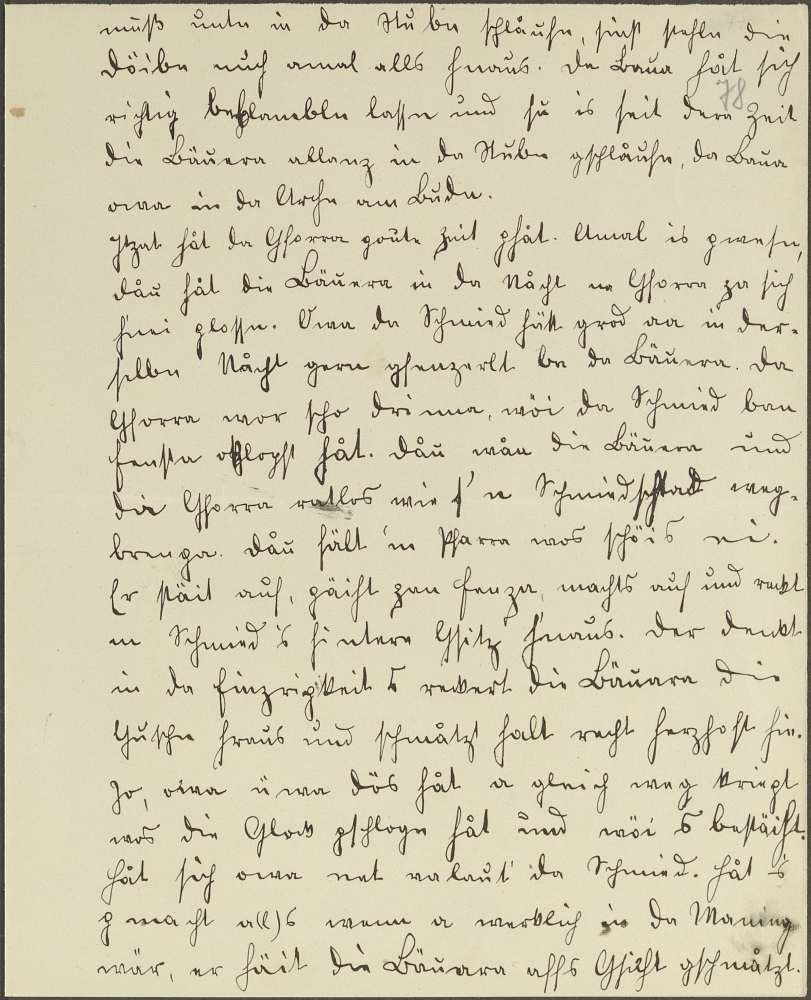 muß unta in da Stubn schlåufn, sinst stehln die
Döibe nuch amal alls hnaus. De Baua håt sich
78
richtig beplaneblu lassn und su is seit dera Zeit
die Bäuera allanz in da Stubn gschlåufn, da Baua
owa in da Arche am Budn.
Itzat håt da Ghorra goute Zeit ghåt. Amal is gwesn,
dåu håt die Bäuera in da Nåcht na Ghorra za sich
h'nei glossn. Owa da Schmied hätt grod aa in der-
selbn Nåcht gern gfenzerlt ba da Bäuera. Da
Ghorra wor scho drinna, wöi da Schmied ban
Fensta oklopft håt. Dåu wån die Bäuera und
da Ghorra ratlos wie s' n Schmied schtad weg-
brenga. Dåu fällt 'm Pfarra wos schöis ei.
Er stäit auf, gäiht zan Fenza, machts auf und reckt
m Schmied 's hintere Gsitz h'naus. Der denkt
in da Finzrigkeit s reckert die Bäuara die
Guschn hraus und schmåtzt halt recht herzhoft hin.
Jo, owa üwa dös håt a gleich weg kriegt
wos die Glock gschlogn håt und wöi s bestäiht.
Håt sich owa net valaut da Schmied. Håt 's
gmacht a(l)s wenn a werklich in da Maning
wär, er häit die Bäuara affs Gsicht gschmåtzt.